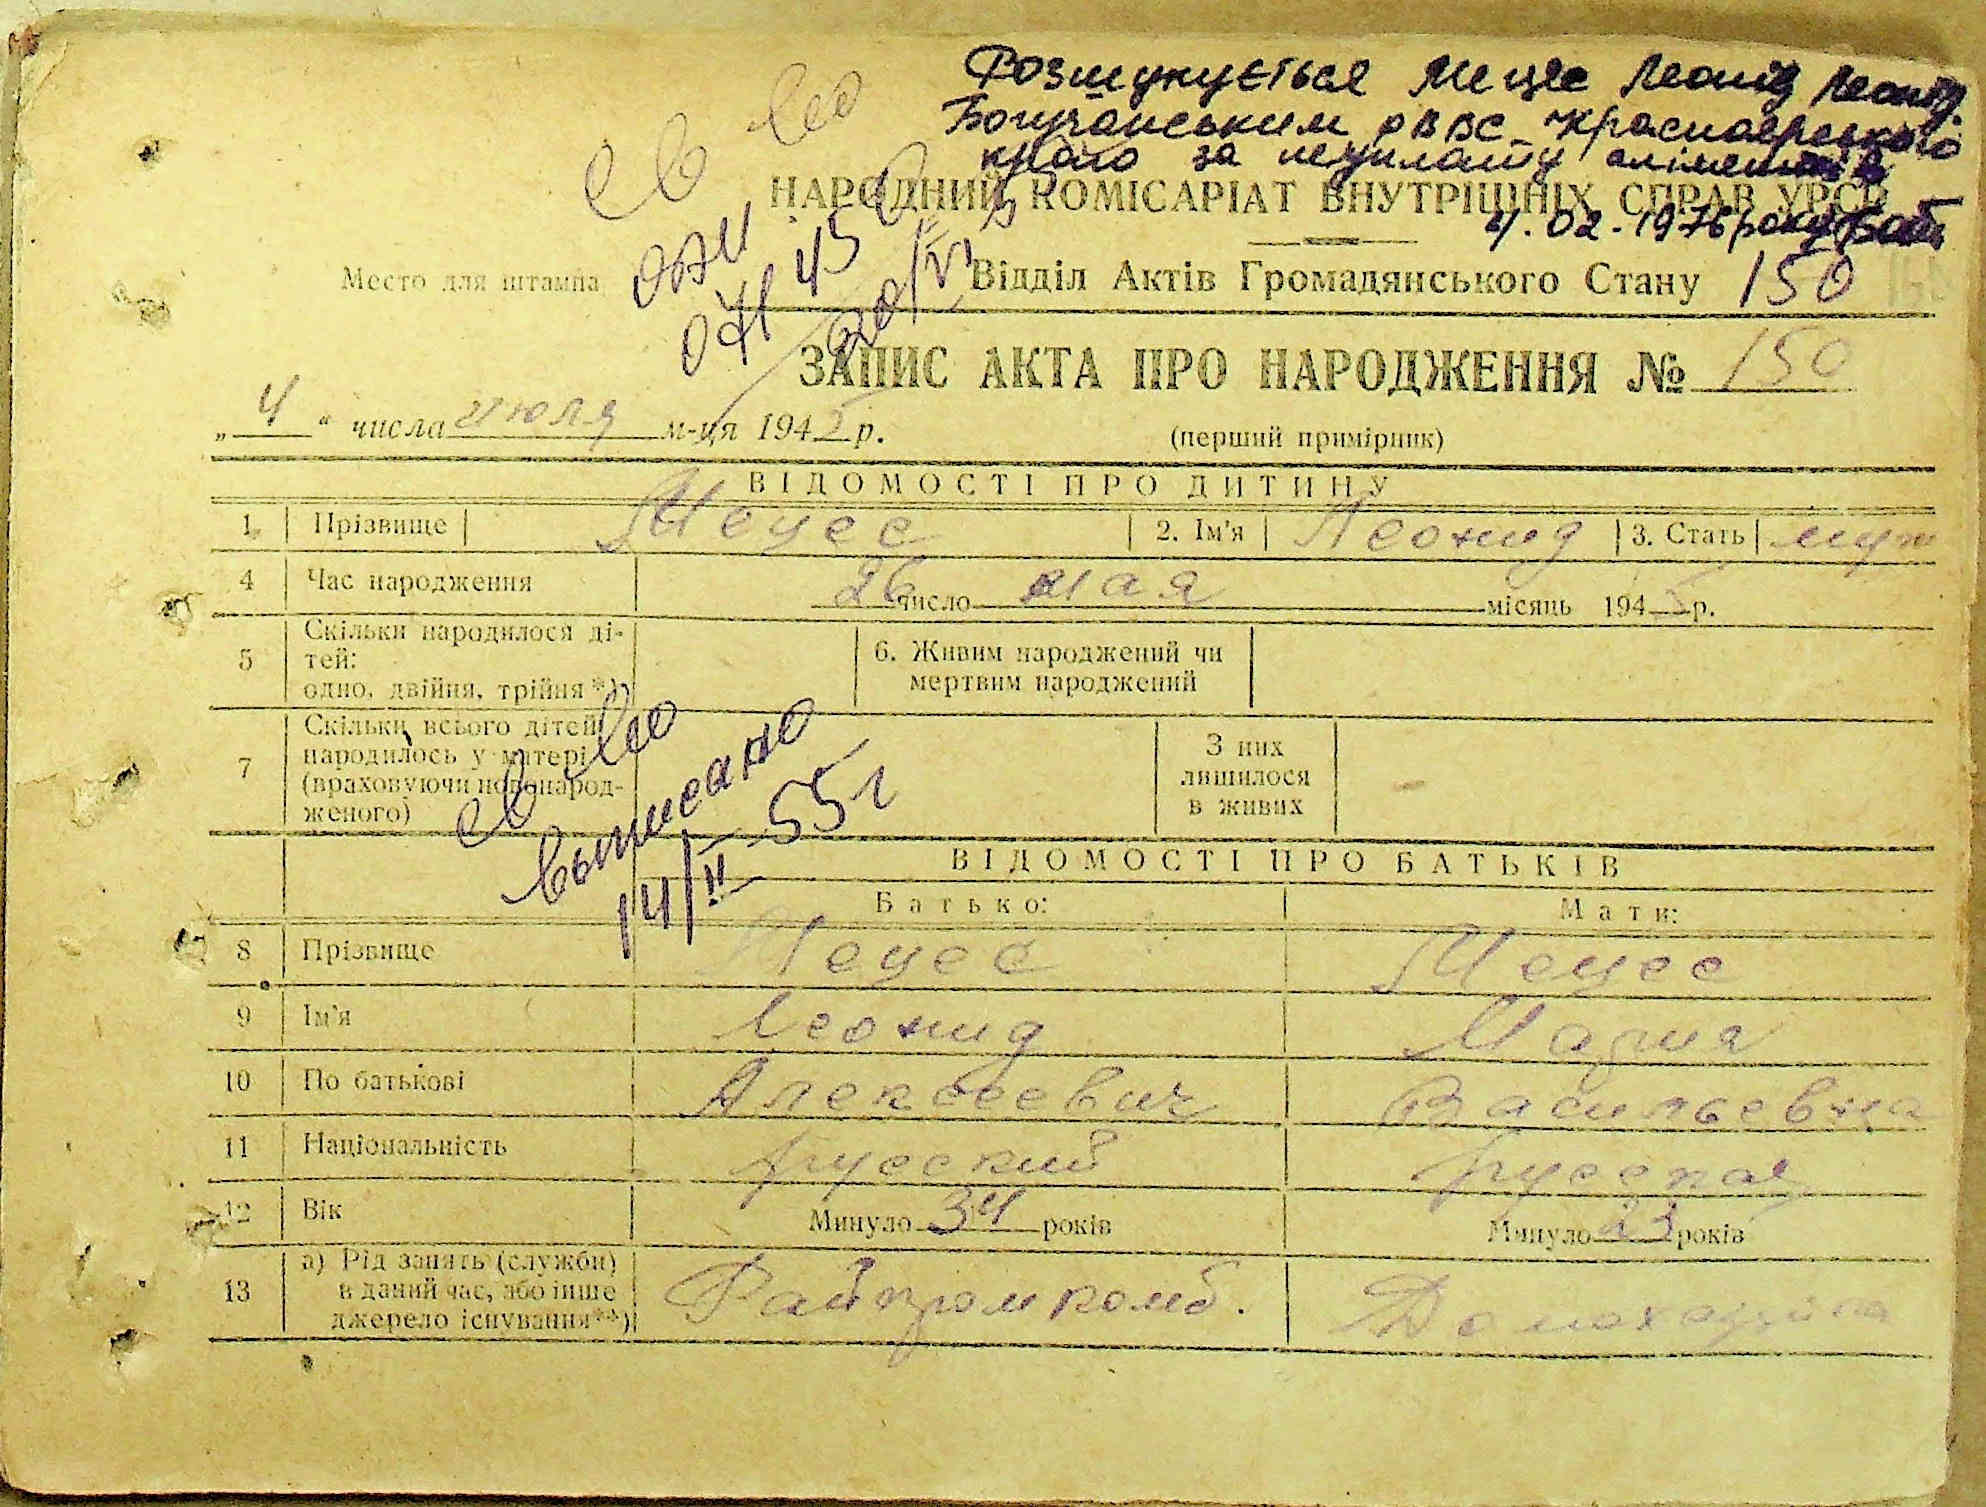 Розшукується Мецес Леонід Леонід.
Богучанським РВВС Красноярського
краю за неуплату аліментів
4.02.1976 року
НАРОДНИЙ КОМІСАРІАТ ВНУТРІШНІХ СПРАВ УРСР
Место для штампа
Відділ Актів Громадянського Стану 150
ЗАПИС АКТА ПРО НАРОДЖЕННЯ № 150
„ 4 “ числа июля м-ця 1945 р.
(перший примірник)
ВІДОМОСТІ ПРО ДИТИНУ
1. Прізвище Мецес 2. Ім'я Леонид 3. Стать муж
4 Час народження 26 число мая місяць 1945 р.
5 Скільки народилося ді-
тей:
одно, двійня, трійня*)
6. Живим народжений чи
мертвим народжений
7 Скільки всього дітей
народилось у матері
(враховуючи новонарод-
женого)
З них
лишилося
в живих
св
выписано
14/II 55 г
ВІДОМОСТІ ПРО БАТЬКІВ
Батько: Мати:
8 Прізвище Мецес Мецес
9 Ім'я Леонид Мария
10 По батькові Алексеевич Васильевна
11 Національність русский русская
12 Вік Минуло 34 років Минуло 23 років
13 а) Рід занять (служби)
в даний час, або інше
джерело існування**)
Райпромкомб. Домохазяйка